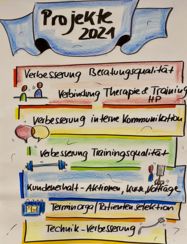 Projekte
2021
Verbesserung Beratungsqualität
Verbindung Therapie & Training
HP
Verbesserung interne Kommunikation
Verbesserung Trainingsqualität
Kundenerhalt - Aktionen, Kurse, Vorträge
Terminorga / Patientenselektion
Technik-Verbesserung